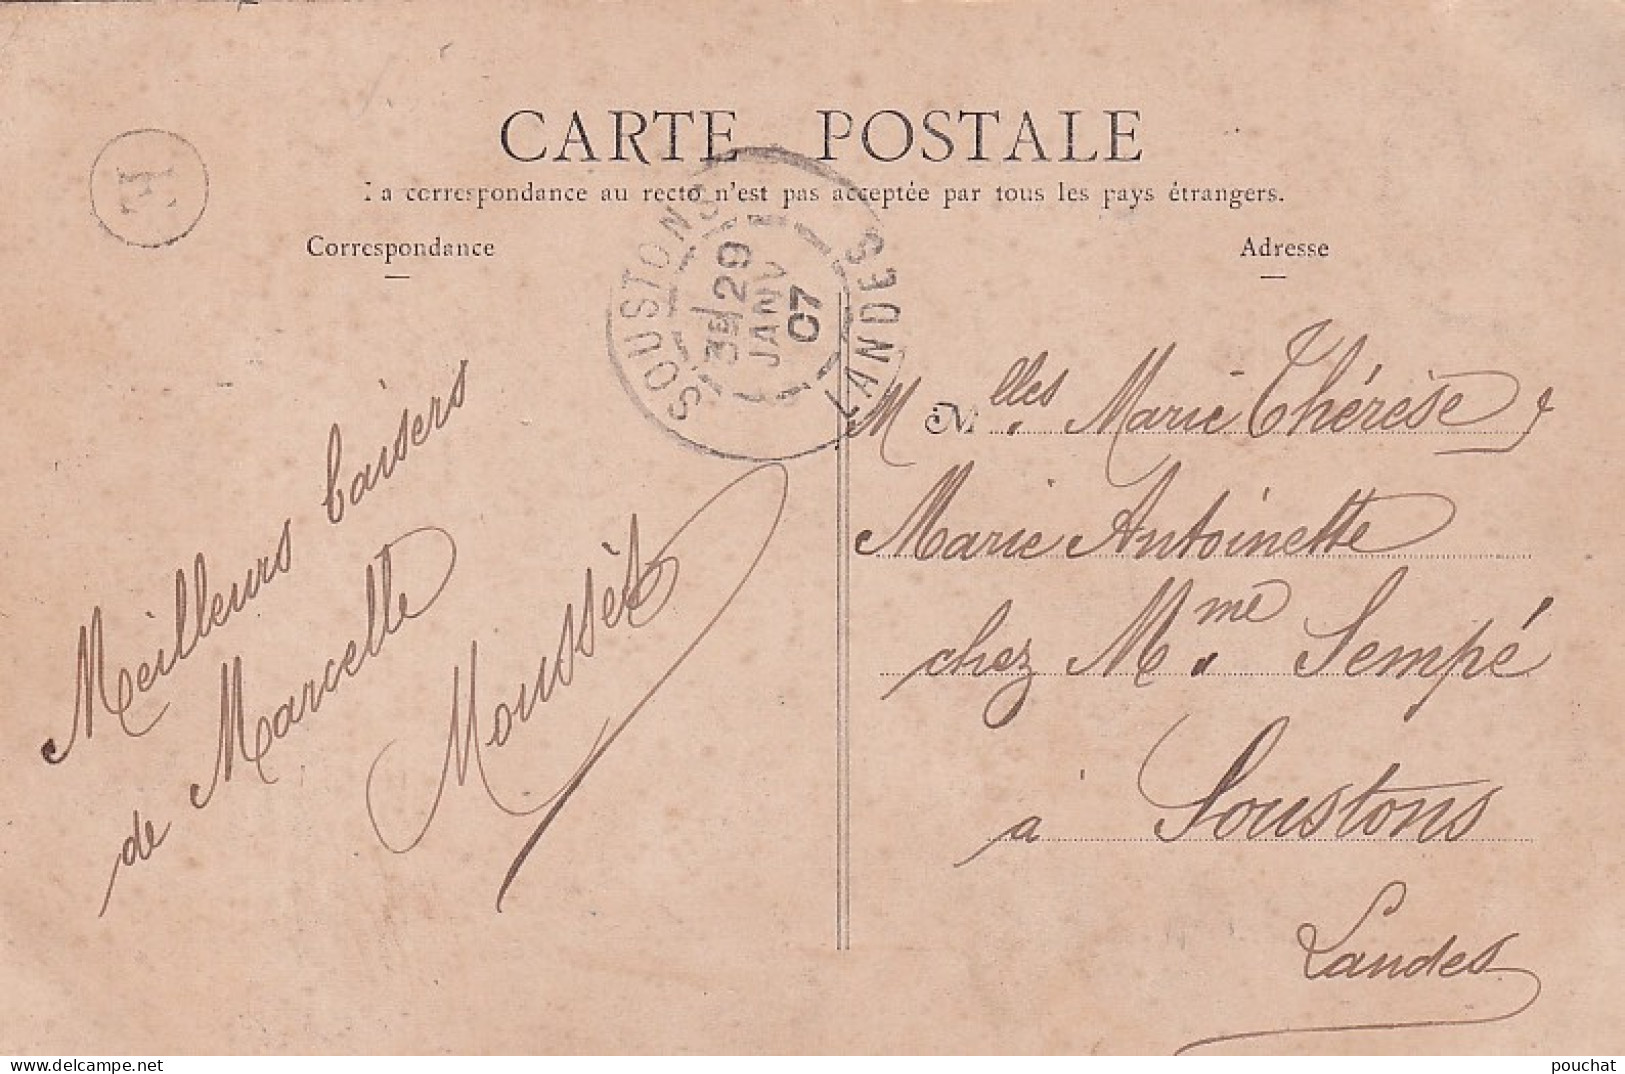 CARTE POSTALE
La correspondance au recto n'est pas acceptée par tous les pays étrangers.
Correspondance
Adresse
E
SOUSTONS
3E 29
JANV
07
LANDES
Meilleurs baisers
de Marcelle
Moussèt
M M lles Marie Thérèse &
Marie Antoinette
chez Mme Sempé
à Soustons
Landes
www.delcampe.net
pouchat